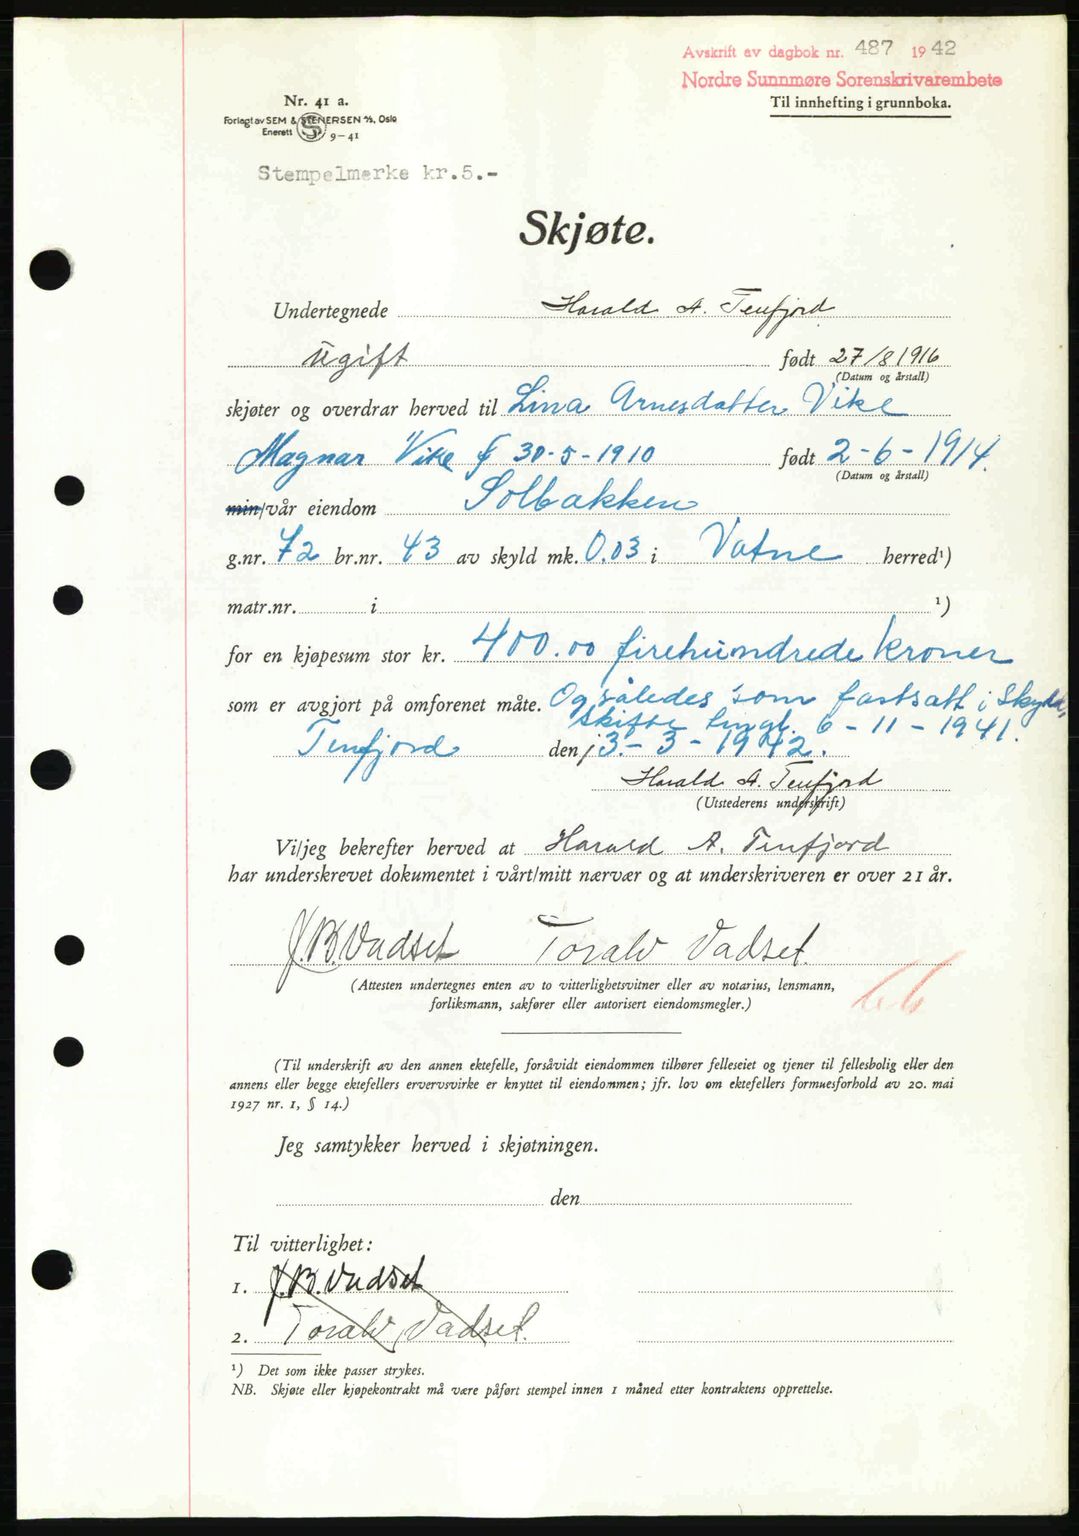 Avskrift av dagbok nr. 487 1942
Nordre Sunnmøre Sorenskrivarembete
Til innhefting i grunnboka.
Nr. 41 a.
Forlagt av SEM & STENERSEN A/S, Oslo
Enerett S 9-41
Stempelmerke kr.5.-
Skjøte.
Undertegnede Harald A. Tenfjord
ugift født 27/8 1916
(Datum og årstall)
skjøter og overdrar herved til Lina Arnesdatter Vike
Magnar Vike f 30-5-1910 født 2-6-1914.
(Datum og årstall)
min/vår eiendom Solbakken
g.nr. 72 br.nr. 43 av skyld mk. 0.03 i Vatne herred¹)
matr.nr. i ¹)
for en kjøpesum stor kr. 400.00 firehundrede kroner
som er avgjort på omforenet måte. Og således som fastsatt i Skyld,
skifte tingl. 6-11-1941.
Tenfjord den 3-3-1942.
Harald A. Tenfjord
(Utstederens underskrift)
Vi/jeg bekrefter herved at Harald A. Tenfjord
har underskrevet dokumentet i vårt/mitt nærvær og at underskriveren er over 21 år.
J.B. Vadset Toralv Vadset.
(Attesten undertegnes enten av to vitterlighetsvitner eller av notarius, lensmann,
forliksmann, sakfører eller autorisert eiendomsmegler.)
(Til underskrift av den annen ektefelle, forsåvidt eiendommen tilhører felleseiet og tjener til fellesbolig eller den
annens eller begge ektefellers ervervsvirke er knyttet til eiendommen; jfr. lov om ektefellers formuesforhold av 20. mai
1927 nr. 1, § 14.)
Jeg samtykker herved i skjøtningen.
den
Til vitterlighet:
1. J.B. Vadset
2. Toralv Vadset.
¹) Det som ikke passer strykes.
NB. Skjøte eller kjøpekontrakt må være påført stempel innen 1 måned etter kontraktens opprettelse.